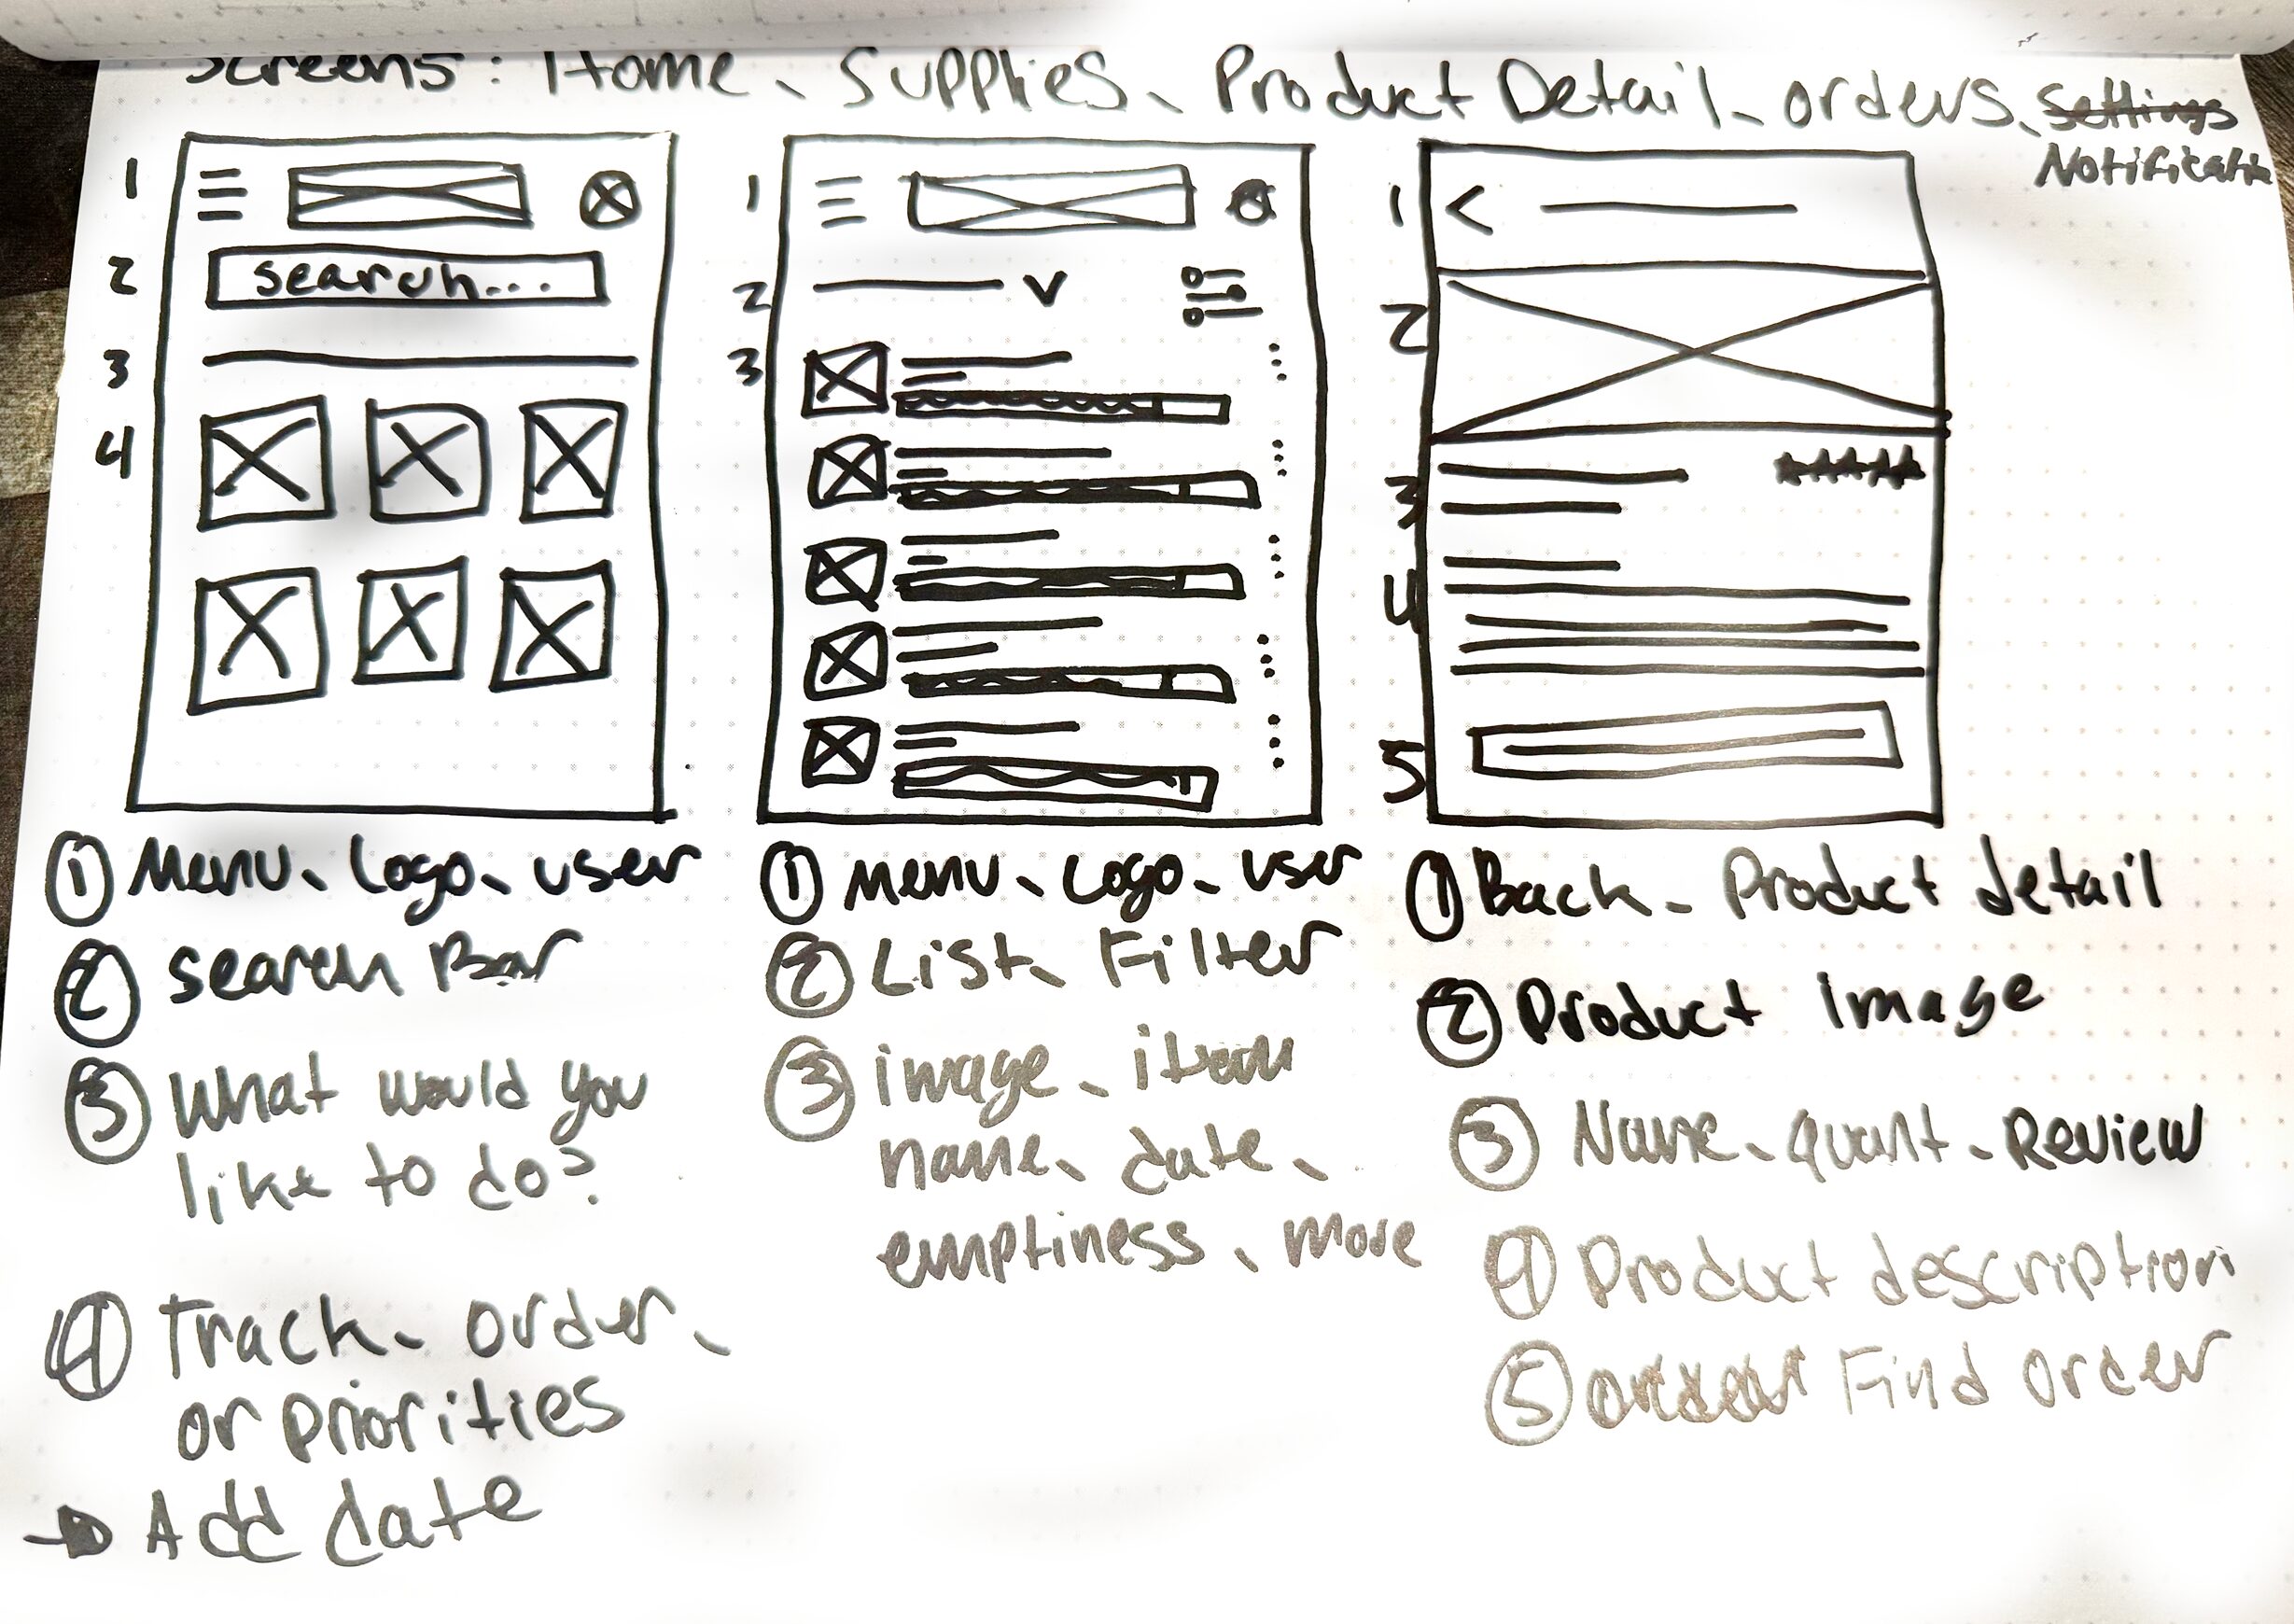 Screens: Home, Supplies, Product Detail, orders, Settings
Notificati
1
2
3
4
search...
1
2
3
1
2
3
4
5
① Menu, Logo, user
② search Bar
③ What would you
like to do?
④ Track, order,
or priorities
→ Add date
① Menu, Logo, user
② List, Filter
③ image, item
name, date,
emptiness, more
① Back, Product detail
② Product image
③ Name, quant, Review
④ Product description
⑤ Find order